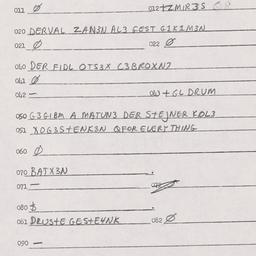 011 Ø 012 +ZMIR3S
020 DERVAL ZAN3N AL3 FEST G1K1M3N
021 Ø 022 Ø
040 DER FIDL OTS3X C3BROXN?
041 Ø
042 — 043 + GL DRUM
050 G3GIBM A MATUN3 DER STEJNER KOL3
051 XOG3S+ENK3N QFOR EVERYTHING
060 Ø
070 BATX3N
071 —
080 $
081 DRUS+E GES+E4NK 082 Ø
090 —